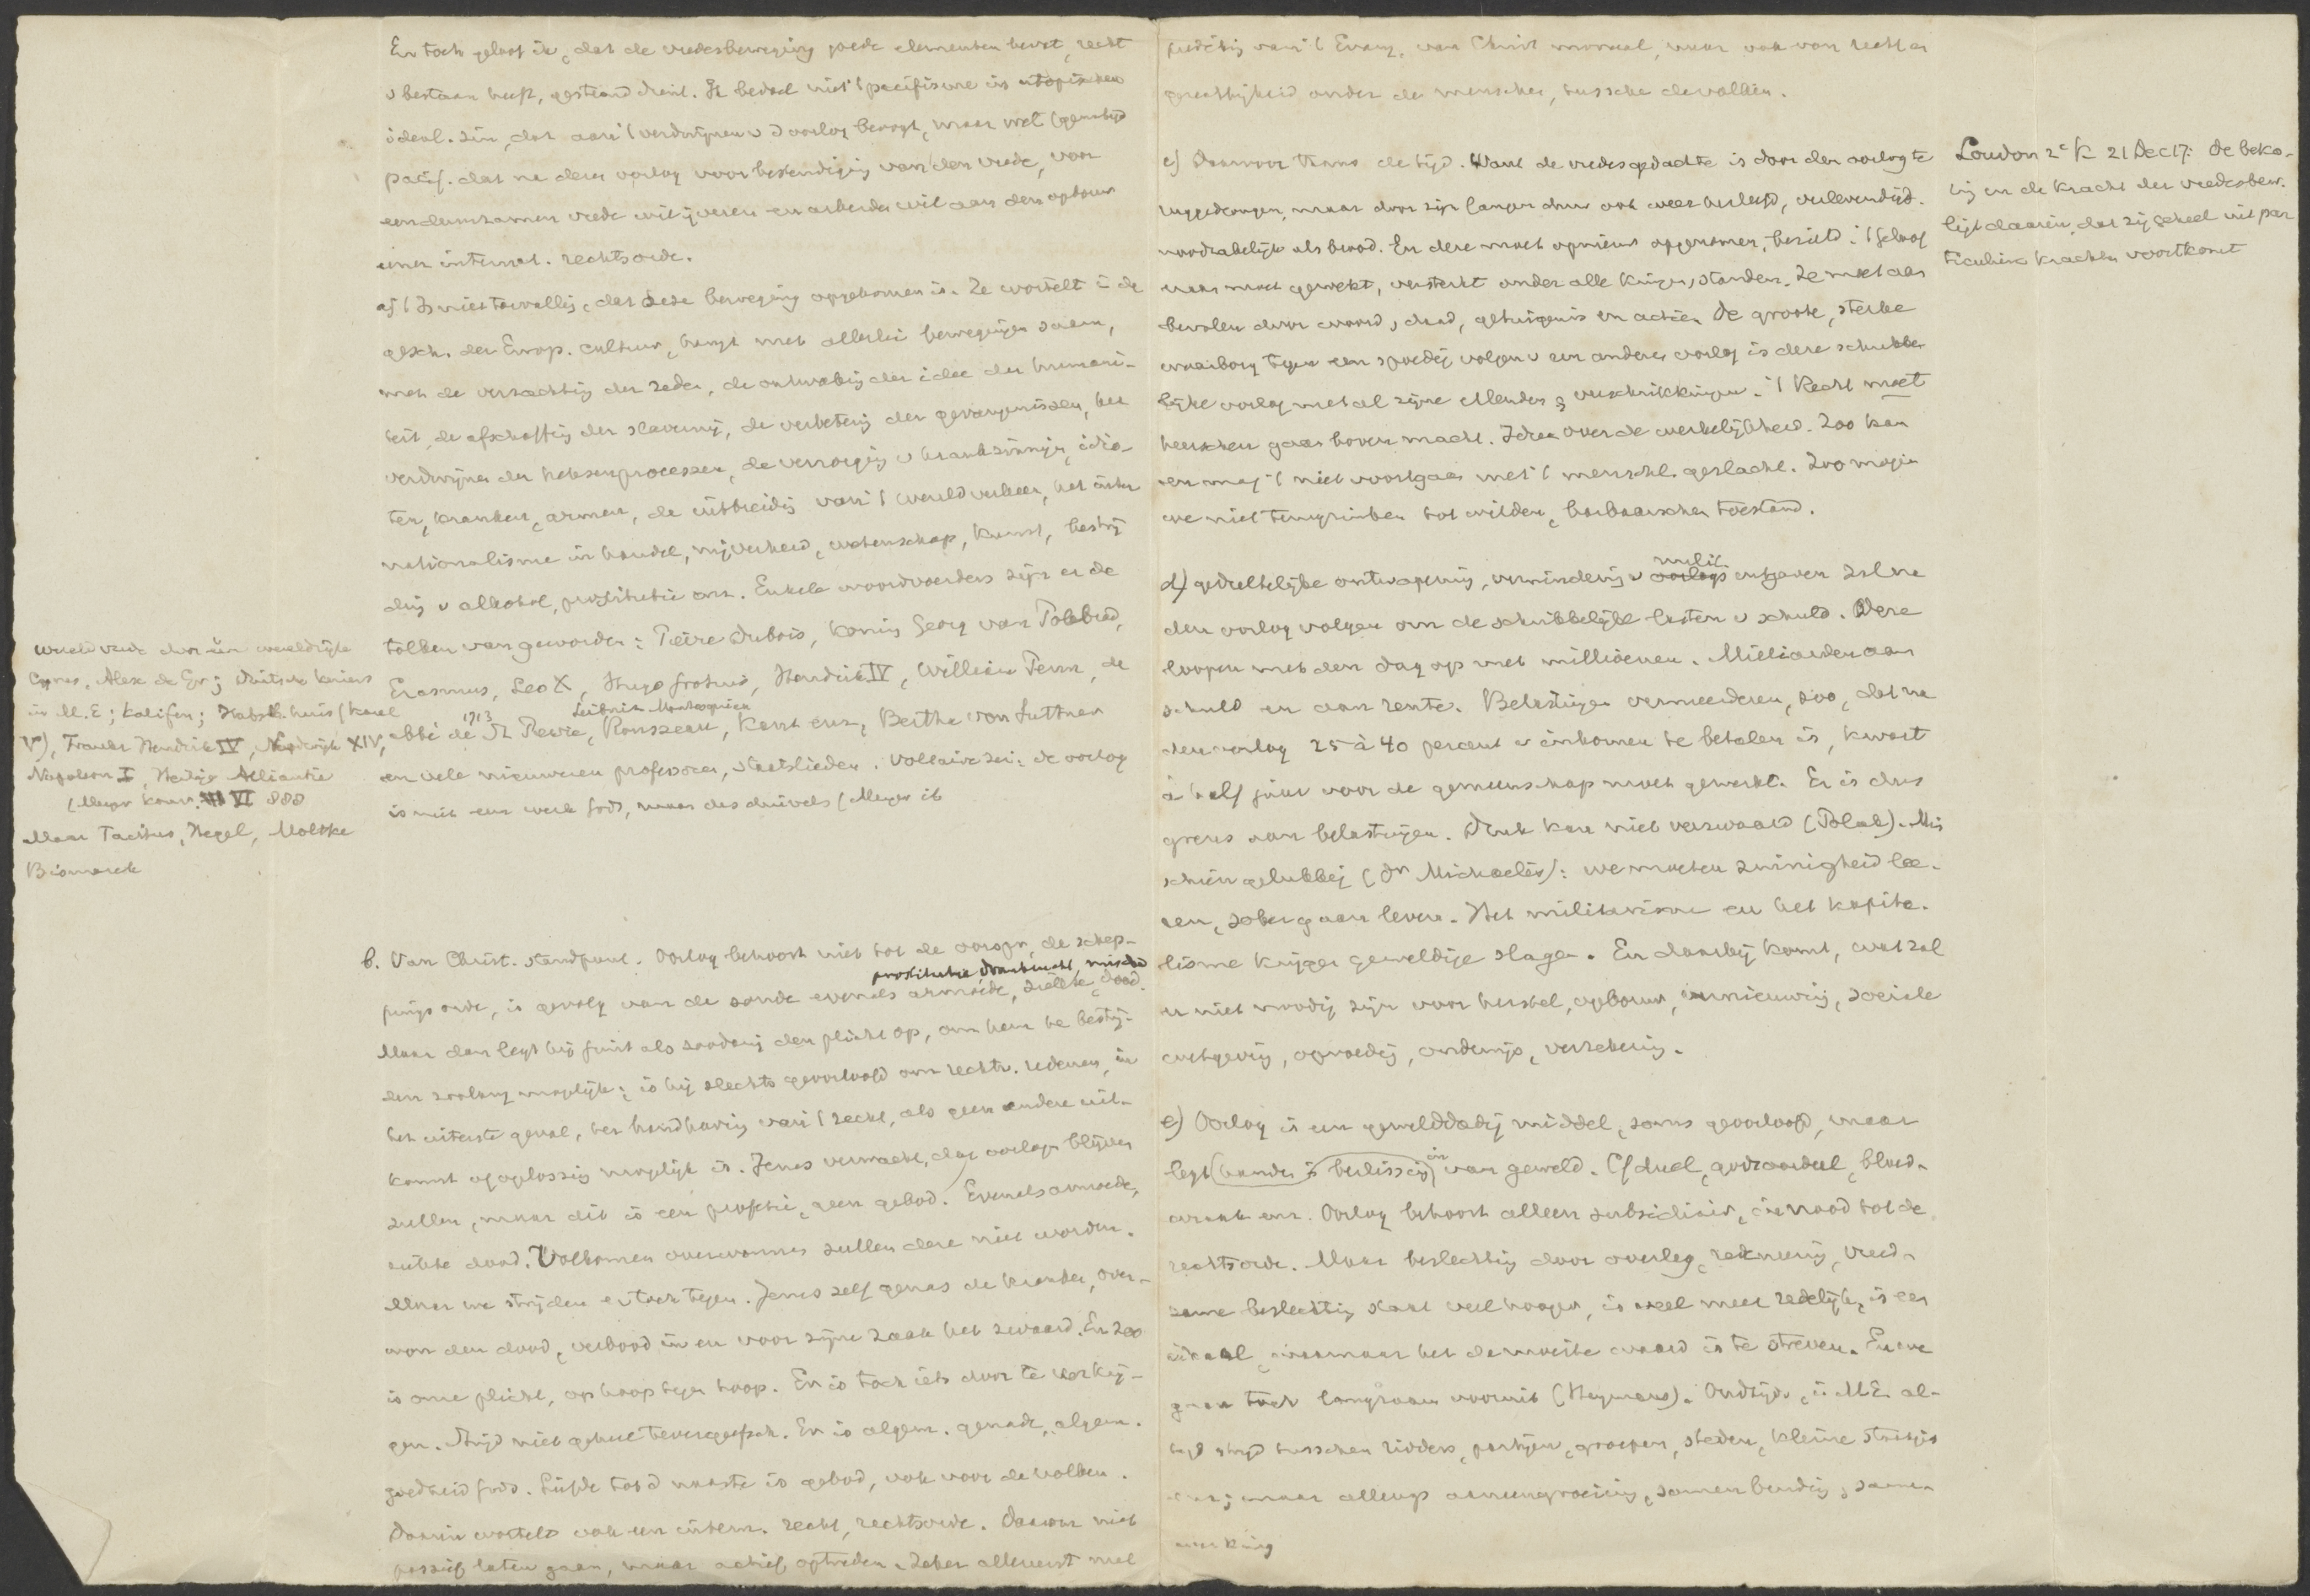 En toch geloof ik, dat de vredesbeweging goede elementen bevat, recht
v bestaan heeft, gesteund dient. Ik bedoel niet 't pacifisme in utopischen
ideal. zin, dat aan 't verdwijnen v d oorlog beoogt, maar wel
pacif. dat na dezen oorlog voor bestendiging van den vrede, voor
een duurzamen vrede wil ijveren en arbeiden wil aan den opbouw
eener internat. rechtsorde.
a) 't Is niet toevallig, dat deze beweging opgekomen is. Ze wortelt in de
gesch. der Europ. cultuur, hangt met allerlei bewegingen saam,
met de verzachting der zeden, de ontwakening der idee der humani-
teit, de afschaffing der slavernij, de verbetering der gevangenissen, het
verdwijnen der heksenprocessen, de verzorging v krankzinnigen, idio-
ten, kranken, armen, de uitbreiding van 't wereldverkeer, het inter
nationalisme in handel, nijverheid, wetenschap, kunst, bestrij
ding v alkohol, prostitutie enz. Enkele woordvoerders zijn er de
tolken van geworden: Pierre Dubois, koning Georg van Podebrad,
Erasmus, Leo X, Hugo Grotius, Hendrik IV, William Penn, de
1713 Leibnitz Montesquieu
abbé de St Pierre, Rousseau, Kant enz, Bertha von Suttner
en vele nieuweren professoren, staatslieden. Voltaire zei: de oorlog
is niet een werk Gods, maar des duivels (Meyer ib
wereldvrede door één wereldrijk
Cyrus, Alex de Gr; Duitsche keizers
in M.E; Kalifen; Habsb. huis (Karel
V), Frankr Hendrik IV, Lodewijk XIV,
Napoleon I, Heilige Alliantie
(Meyer Konv. VI 888
Maar Tacitus, Hegel, Moltke
Bismarck
b. Van Christ. standpunt. Oorlog behoort niet tot de oorspr, de schep-
prostitutie drankzucht, misdad
pingsorde, is gevolg van de zonde evenals armoede, ziekte, dood.
Maar dan legt hij juist als zoodanig den plicht op, om hem te bestrij-
den zoolang mogelijk; is hij slechts geoorloofd om rechtv. redenen, in
het uiterste geval, ter handhaving van 't recht, als geen andere uit-
komst of oplossing mogelijk is. Jezus verwacht, dat oorlogen blijven
zullen, maar dit is een profetie, geen gebod. Evenals armoede,
ziekte dood. Volkomen overwonnen zullen deze niet worden.
Maar we strijden er toch tegen. Jezus zelf genas de kranken, over-
won den dood, verbood in en voor zijne zaak het zwaard. En zoo
is onze plicht, op hoop tegen hoop. En is toch iets door te verkrij-
gen. Strijd niet geheel tevergeefsch. Er is algem. genade, algem.
goedheid Gods. Liefde tot d naaste is gebod, ook voor de volken.
Daarin wortelt ook een intern. recht, rechtsorde. Daarom niet
passief laten gaan, maar actief optreden. Zeker allereerst met
prediking van 't Evang, van Christ moraal, maar ook van recht en
gerechtigheid onder de menschen, tussche de volken.
c) Daarvoor thans de tijd. Want de vredesgedachte is door den oorlog te
ruggedrongen, maar door zijn langen duur ook weer herleefd, verlevendigd.
noodzakelijk als brood. En deze moet opnieuw opgenomen, bezield. 't Geloof
eraan moet gewekt, versterkt onder alle kringen, standen. Ze moet aan
bevolen door woord, daad, getuigenis en actie. De groote, sterke
waarborg tegen een spoedig volgen v een anderen oorlog is deze schrikke
lijke oorlog met al zijne ellenden & verschrikkingen. 't Recht moet
heerschen gaan boven macht. Idee over de werkelijkheid. Zoo kan
en mag 't niet voortgaan met 't menschl. geslacht. Zoo mogen
we niet terugzinken tot wilden, barbaarschen toestand.
Loudon 2e K 21 Dec 17: de beko-
ing en de kracht der vredesbew.
ligt daarin, dat zij geheel uit par
ticuliere krachten voortkomt
milit.
d) gedeeltelijke ontwapening, vermindering v oorlogs uitgaven zal na
den oorlog volgen om de schrikkelijke lasten v schuld. Deze
loopen met den dag op met millioenen. Milliarden aan
schuld en aan rente. Belastingen vermeerderen, zoo, dat na
den oorlog 25 à 40 percent v inkomen te betalen is, kwart
à half jaar voor de gemeenschap moet gewerkt. Er is dus
grens aan belastingen. Druk kan niet verzwaard (Polak). Mis
schien gelukkig (Dr Michaelis): we moeten zuinigheid lee-
ren, sober gaan leven. Het militarisme en het kapita-
lisme krijgen geweldige slagen. En daarbij komt, wat zal
er niet noodig zijn voor herstel, opbouw, vernieuwing, sociale
wetgeving, opvoeding, onderwijs, verzekering.
e) Oorlog is een gewelddadig middel, soms geoorloofd, maar
legt handen beslissing in van geweld. Cf duel, godsoordeel, bloed-
wraak enz. Oorlog behoort alleen subsidiair, in nood tot de
rechtsorde. Maar beslechting door overleg, rekening, vreed-
zame beslechting staat veel hooger, is veel meer redelijk, is een
ideaal, waarnaar het de moeite waard is te streven. En we
gaan toch langzaam vooruit (Heymans). Oudtijds, in M.E. al-
tijd strijd tusschen ridders, partijen, groepen, steden, kleine staatjes
enz; maar allengs aaneengroeiing, samenbinding, samen
werking